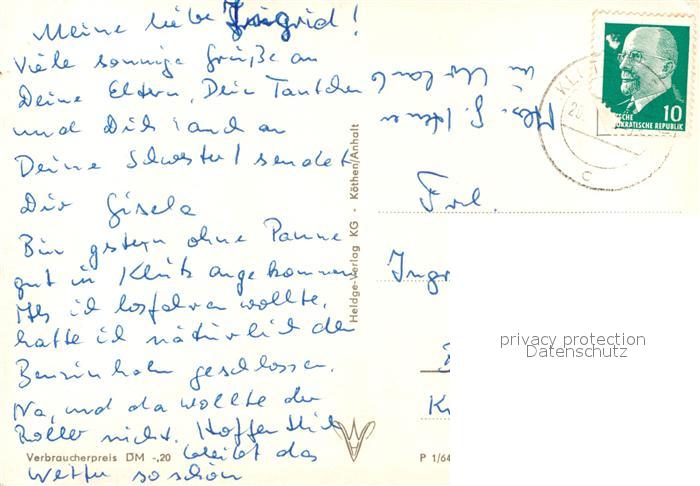 Meine liebe Ingrid!
Viele sonnige Grüße an
Deine Eltern, Dein Tantchen
und Dich (auch an
Deine Schwester) sendet
Dir Gisela
Bin gestern ohne Panne
gut in Klütz angekommen
Als ich losfahren wollte,
hatte ich natürlich den
Benzinhahn geschlossen.
Na, und da wollte der
Roller nicht. Hoffentlich
bleibt das
Wetter so schön
Verbraucherpreis DM -,20
Heldge-Verlag KG · Köthen/Anhalt
Abs. G.
im Urlaub
KL
20.
c
10
DEUTSCHE
DEMOKRATISCHE REPUBLIK
Frl.
Ingr
K
P 1/64
privacy protection
Datenschutz